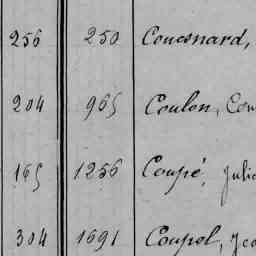 256 250 Couesnard,
204 965 Coulon,
165 1256 Coupé,
304 1691 Coupel,